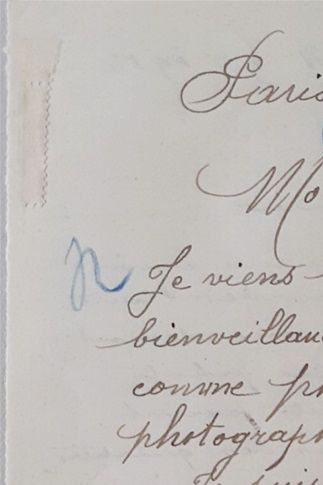 Paris
Mo
n Je viens
bienveillan
comme p
photograph
Je suis